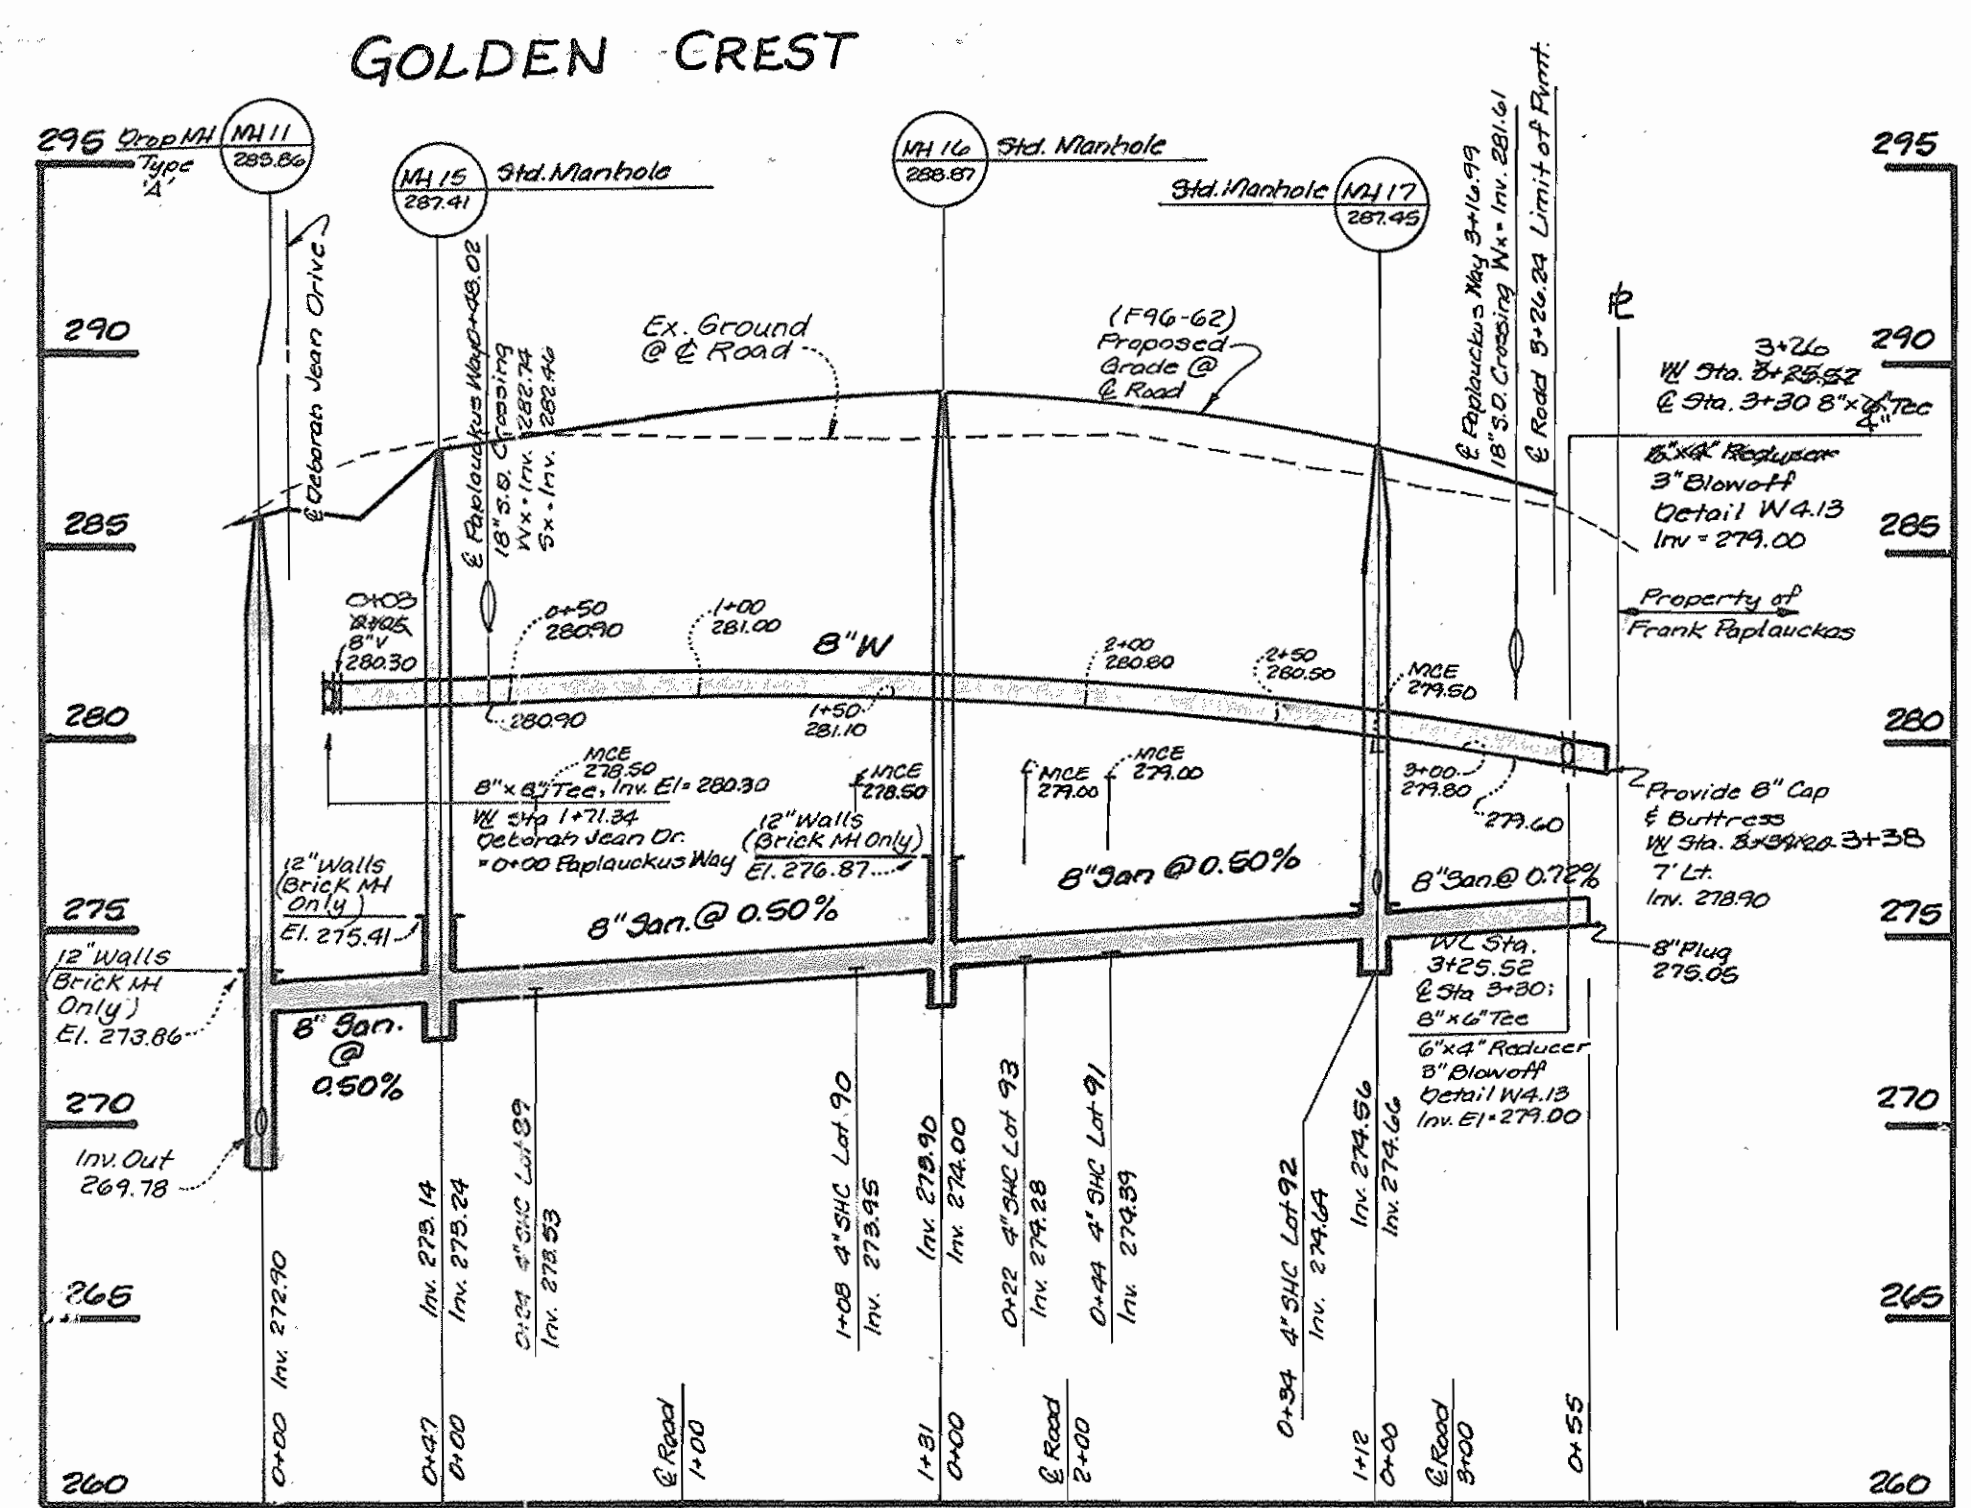 GOLDEN CREST
295
Drop MH
Type
'A'
MH 11
285.86
MH 15
287.41
Std. Manhole
MH 16
288.87
Std. Manhole
Std. Manhole
MH 17
287.45
295
℄ Deborah Jean Drive
℄ Paplauckus Way 0+48.02
18" S.D. Crossing
Wx = Inv. 282.74
Sx = Inv. 282.46
Ex. Ground
@ ℄ Road
(F96-62)
Proposed
Grade @
℄ Road
℄ Paplauckus Way 3+16.99
18" S.D. Crossing Wx = Inv. 281.61
℄ Road 3+26.24 Limit of Pvmt.
℄
290
290
3+26
W Sta. 3+25.52
℄ Sta. 3+30 8"x6" Tee
4"
6"x4" Reducer
3" Blowoff
Detail W4.13
Inv = 279.00
285
285
Property of
Frank Paplauckas
0+03
8"V
280.30
0+50
280.90
1+00
281.00
8"W
2+00
280.80
2+50
280.50
MCE
279.50
280
280
280.90
1+50
281.10
3+00
279.80
279.60
MCE
278.50
8"x8" Tee, Inv. El = 280.30
W Sta 1+71.34
Deborah Jean Dr.
= 0+00 Paplauckus Way
MCE
278.50
MCE
279.00
MCE
279.00
12" Walls
(Brick MH Only)
El. 276.87
Provide 8" Cap
& Buttress
W Sta. 3+38
7' Lt.
Inv. 278.90
12" Walls
(Brick MH
Only)
El. 275.41
8" San. @ 0.50%
8" San @ 0.50%
8" San @ 0.72%
275
275
12" Walls
(Brick MH
Only)
El. 273.86
8" San.
@
0.50%
WL Sta.
3+25.52
℄ Sta 3+30;
8"x6" Tee
6"x4" Reducer
3" Blowoff
Detail W4.13
Inv. El = 279.00
8" Plug
275.05
270
270
Inv. Out
269.78
265
265
0+00 Inv. 272.90
Inv. 273.14
Inv. 273.24
0+24 4" SHC Lot 89
Inv. 273.53
1+08 4" SHC Lot 90
Inv. 273.95
Inv. 273.90
Inv. 274.00
0+22 4" SHC Lot 93
Inv. 274.28
0+44 4" SHC Lot 91
Inv. 274.39
0+34 4" SHC Lot 92
Inv. 274.64
Inv. 274.56
Inv. 274.66
260
0+47
0+00
℄ Road
1+00
1+31
0+00
℄ Road
2+00
1+12
0+00
℄ Road
3+00
0+55
260